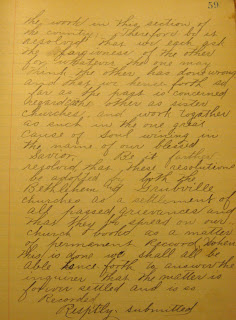 59
the work in this section of
the country. Therefore be it
resolved that we each ask
the forgiveness of the other
for whatever the one may
think the other has done wrong
and that we hence forth so
far as the past is concerned
regard the other as sister
churches, and work together
as such in the one great
Cause of Soul wining in
the name of our blessed
Savior. Be it further
resolved that these resolutions
be adopted by both the
Bethlehem & Grubville
churches as a settlement of
all passed grievances and
that they be spread on our
church books as a matter
of permanent Record. When
this is done we shall all be
able hence forth to answer the
inquirer that the matter is
forever settled and is so
Recorded
Resptly. submitted